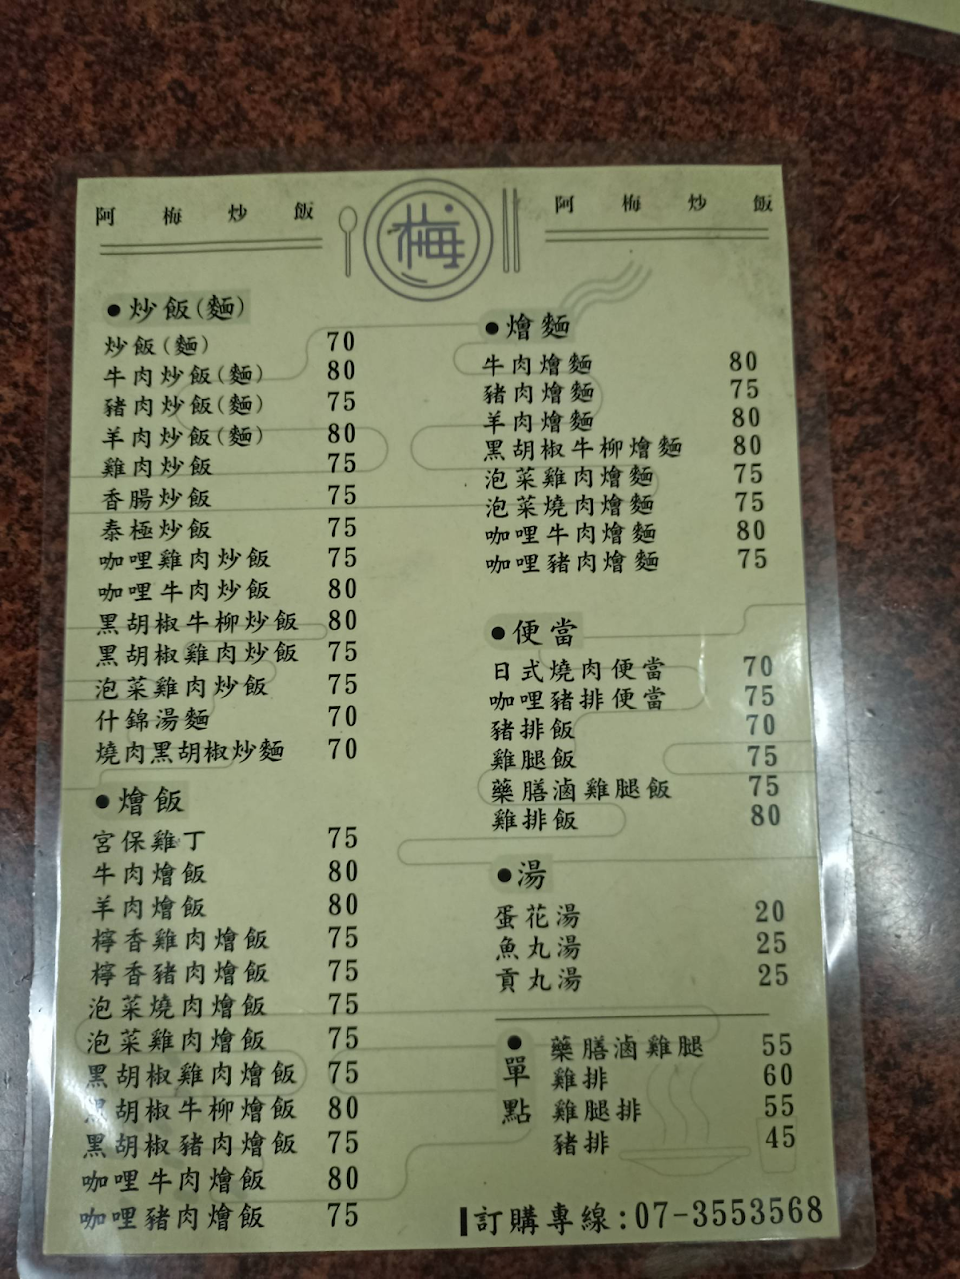 阿梅炒飯
梅
阿梅炒飯
●炒飯(麵)
炒飯(麵) 70
牛肉炒飯(麵) 80
豬肉炒飯(麵) 75
羊肉炒飯(麵) 80
雞肉炒飯 75
香腸炒飯 75
泰極炒飯 75
咖哩雞肉炒飯 75
咖哩牛肉炒飯 80
黑胡椒牛柳炒飯 80
黑胡椒雞肉炒飯 75
泡菜雞肉炒飯 75
什錦湯麵 70
燒肉黑胡椒炒麵 70
●燴飯
宮保雞丁 75
牛肉燴飯 80
羊肉燴飯 80
檸香雞肉燴飯 75
檸香豬肉燴飯 75
泡菜燒肉燴飯 75
泡菜雞肉燴飯 75
黑胡椒雞肉燴飯 75
黑胡椒牛柳燴飯 80
黑胡椒豬肉燴飯 75
咖哩牛肉燴飯 80
咖哩豬肉燴飯 75
●燴麵
牛肉燴麵 80
豬肉燴麵 75
羊肉燴麵 80
黑胡椒牛柳燴麵 80
泡菜雞肉燴麵 75
泡菜燒肉燴麵 75
咖哩牛肉燴麵 80
咖哩豬肉燴麵 75
●便當
日式燒肉便當 70
咖哩豬排便當 75
豬排飯 70
雞腿飯 75
藥膳滷雞腿飯 75
雞排飯 80
●湯
蛋花湯 20
魚丸湯 25
貢丸湯 25
●單點
藥膳滷雞腿 55
雞排 60
雞腿排 55
豬排 45
訂購專線:07-3553568